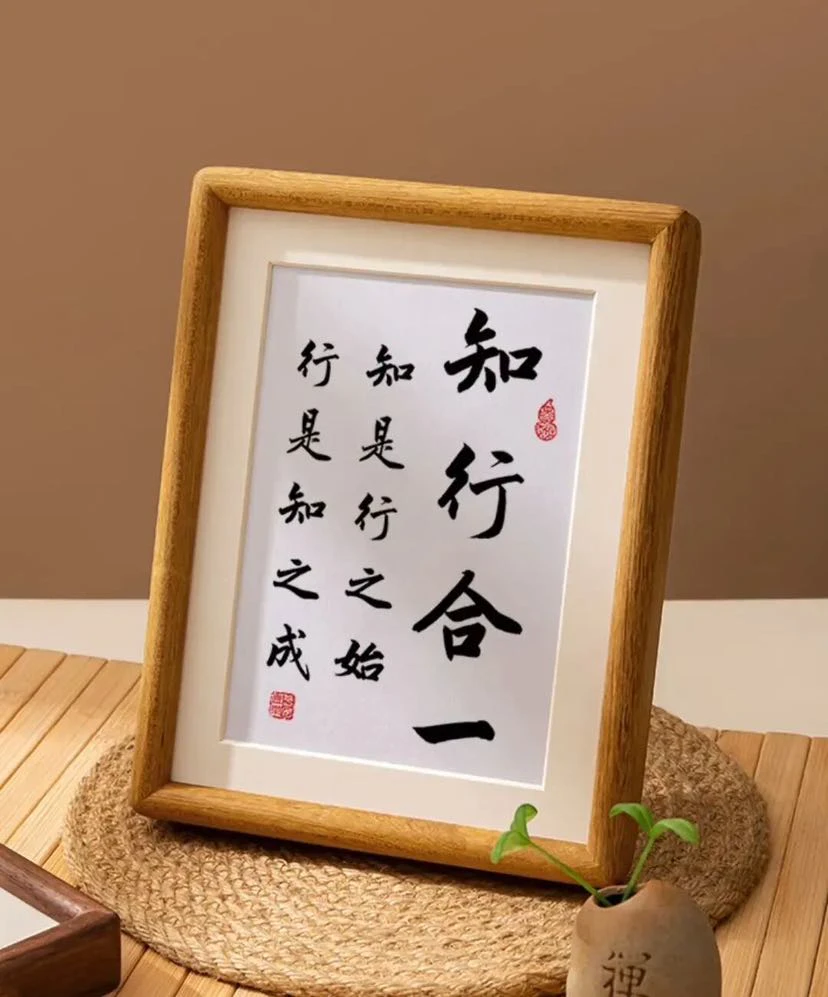 知行合一
知是行之始
行是知之成
禅